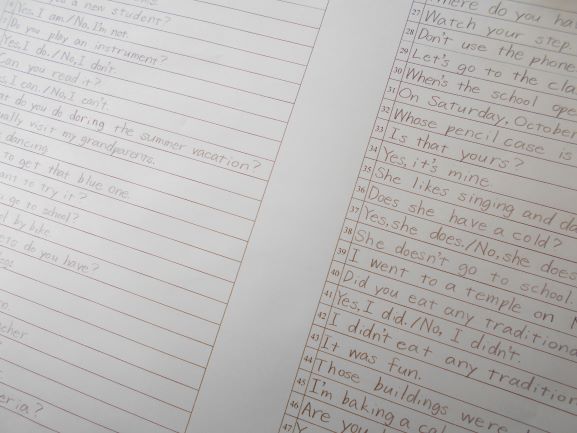 a new student?
Yes, I am./No, I'm not.
Do you play an instrument?
Yes, I do./No, I don't.
can you read it?
I can./No, I can't.
do you do doring the summer vacation?
visit my grandparents.
dancing
to get that blue one.
to try it?
go to school?
by bike.
do you have?
do you ha
27 Watch your step.
28 Don't use the phone
29 Let's go to the cla
30 When's the school ope
31 On Saturday, October
32 Whose pencil case is
33 Is that yours?
34 Yes, it's mine.
35 She likes singing and da
36 Does she have a cold?
37 Yes, she does./No, she does
38 She doesn't go to school.
39 I went to a temple on
40 Did you eat any traditiona
41 Yes, I did./No, I didn't.
42 I didn't eat any tradition
43 It was fun.
44 Those buildings were
45 I'm baking a ca
46 Are you
47